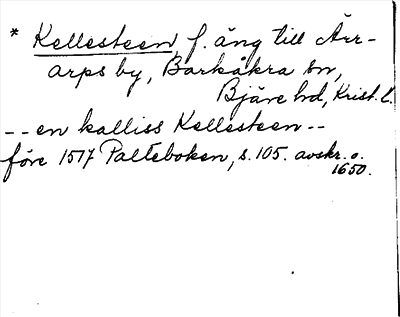 * Kellesteen, f. äng till Ärr-
arps by, Barkåkra sn,
Bjäre hd, Krist. l.
-- en kalliss Kellesteen --
före 1517 Palteboken, s. 105. avskr. o.
1650.